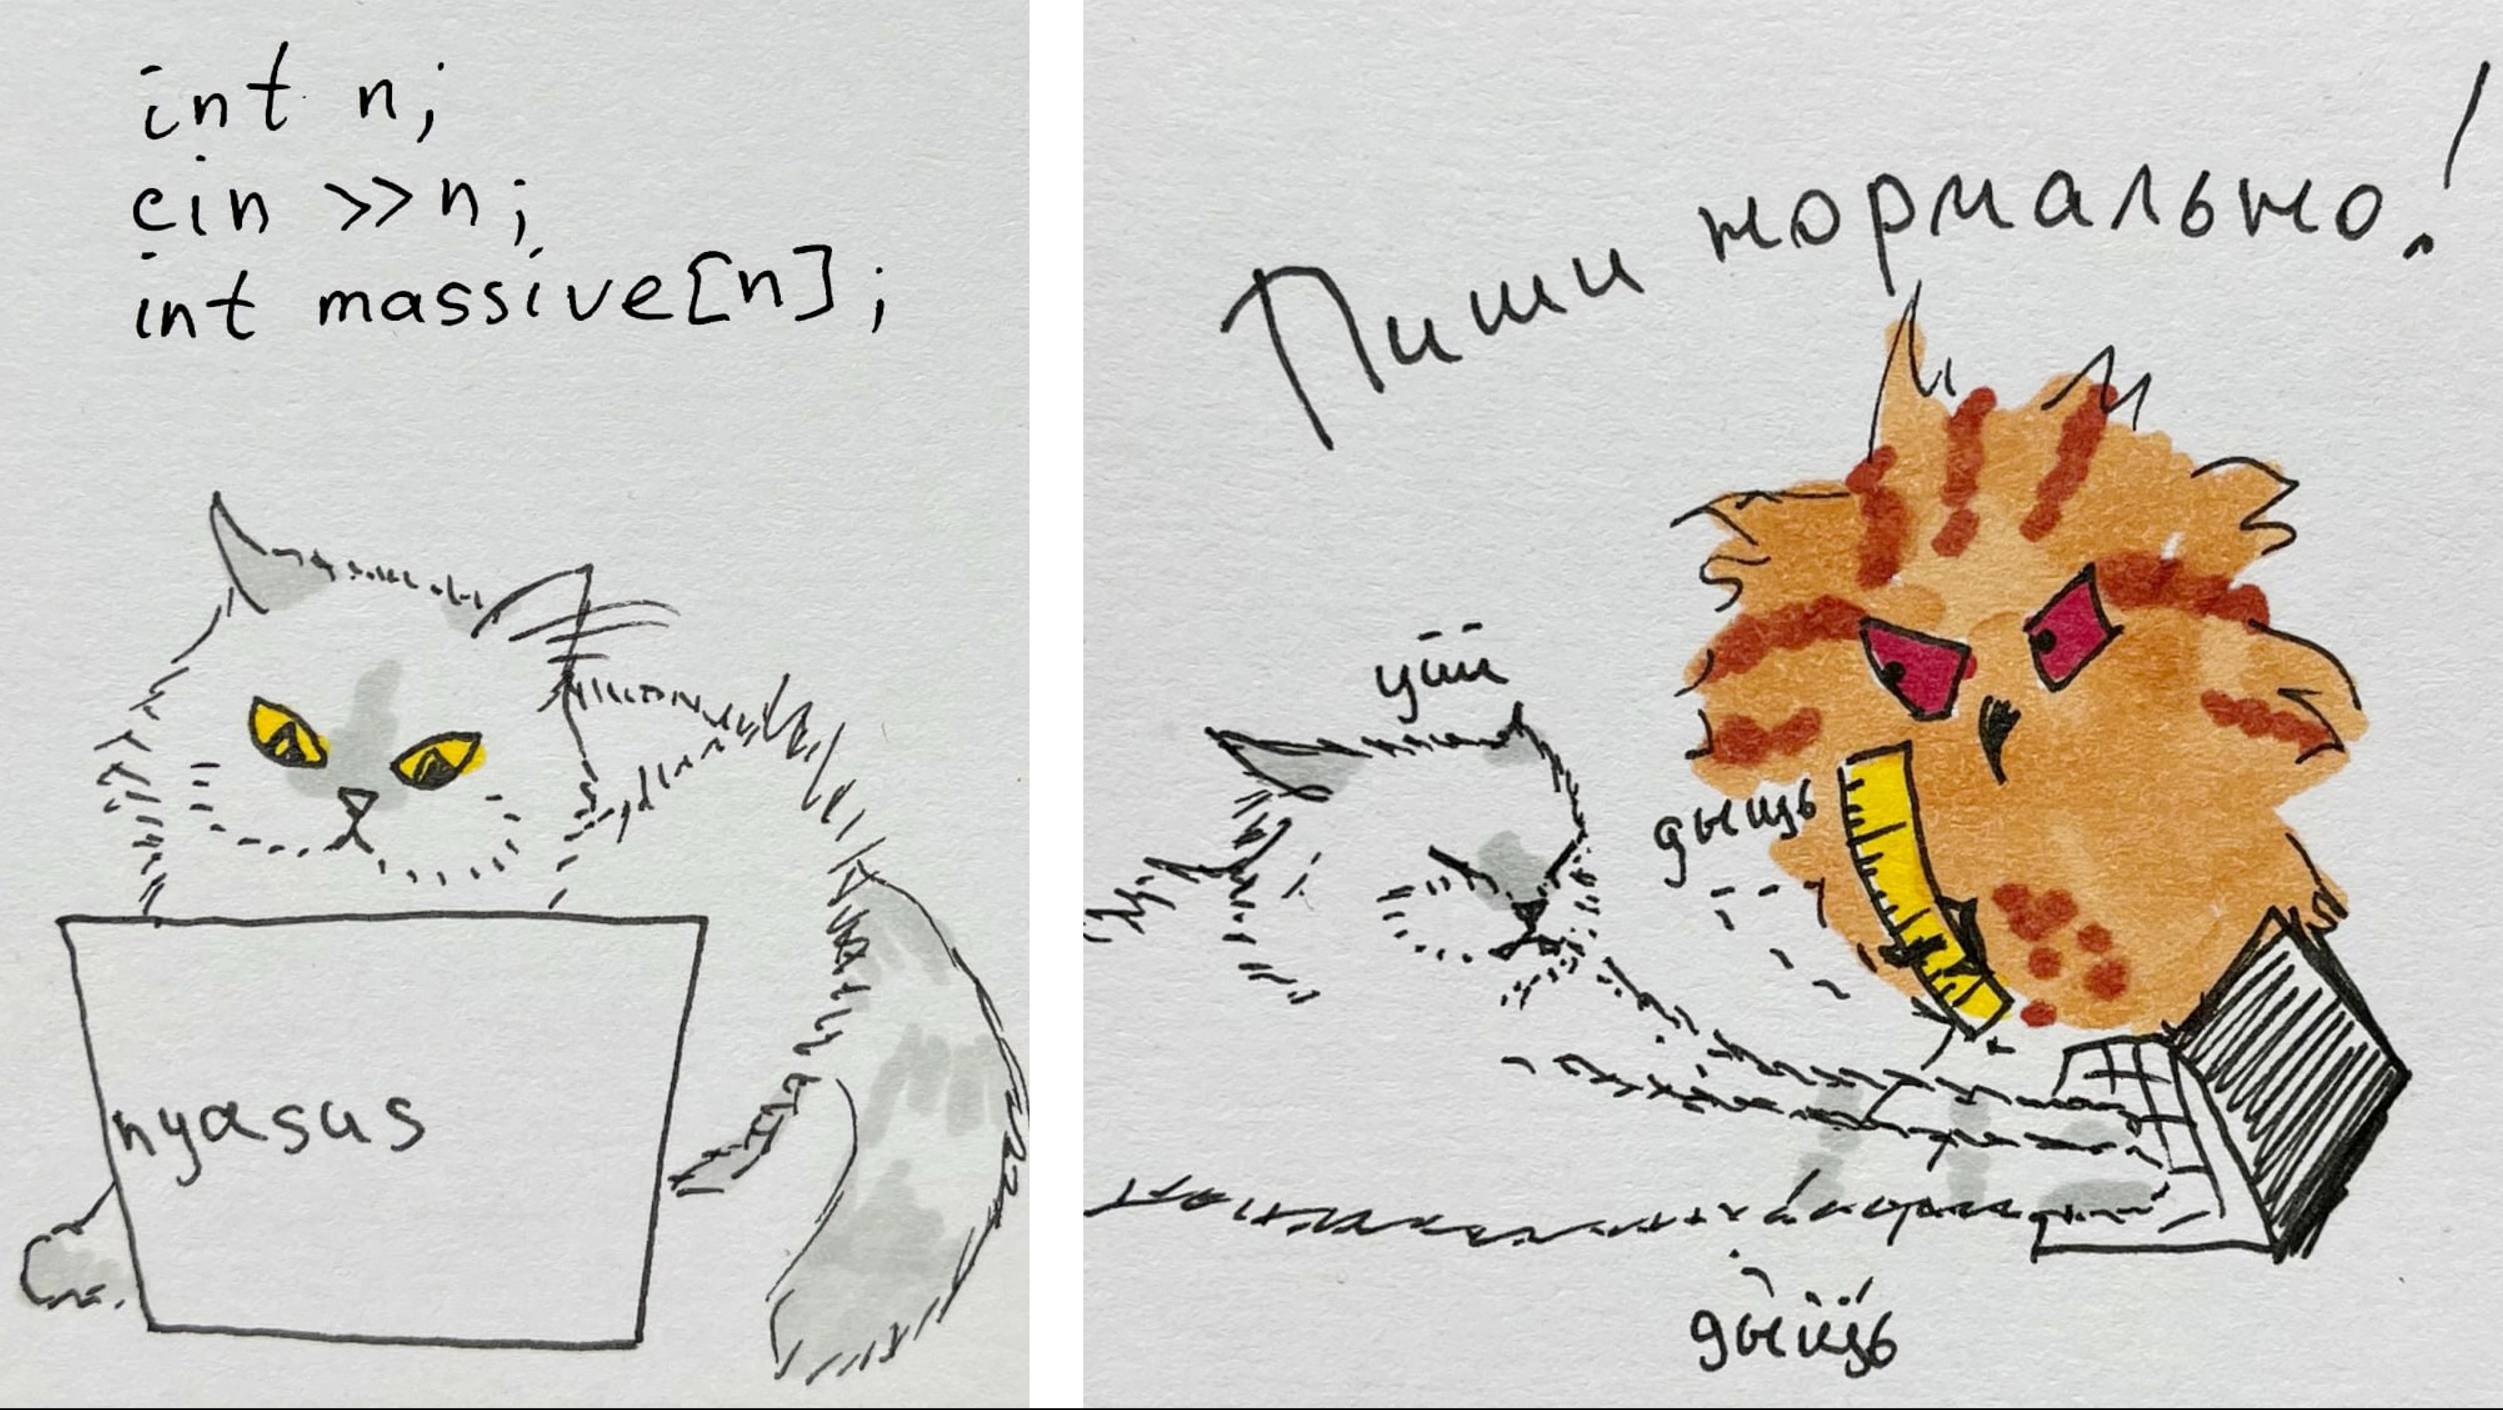 int n;
cin >> n;
int massive[n];
nyasus
Пиши нормально!
уйй
дыщь
дыщь